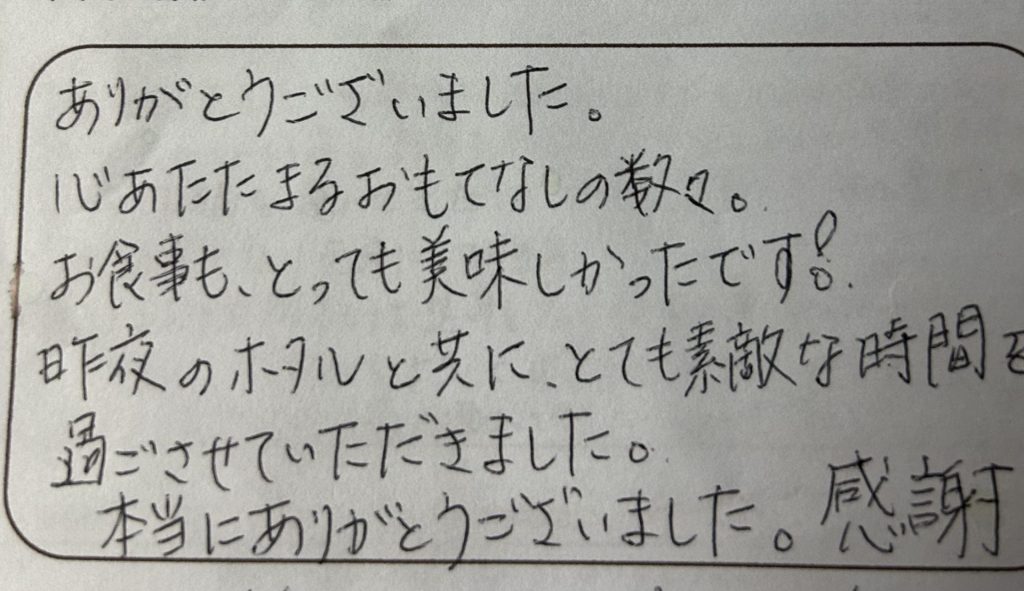 ありがとうございました。
心あたたまるおもてなしの数々。
お食事も、とっても美味しかったです!
昨夜のホタルと共に、とても素敵な時間を
過ごさせていただきました。
本当にありがとうございました。感謝